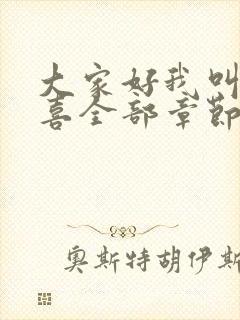 大家好我叫
喜全部章节
奥斯特胡伊斯